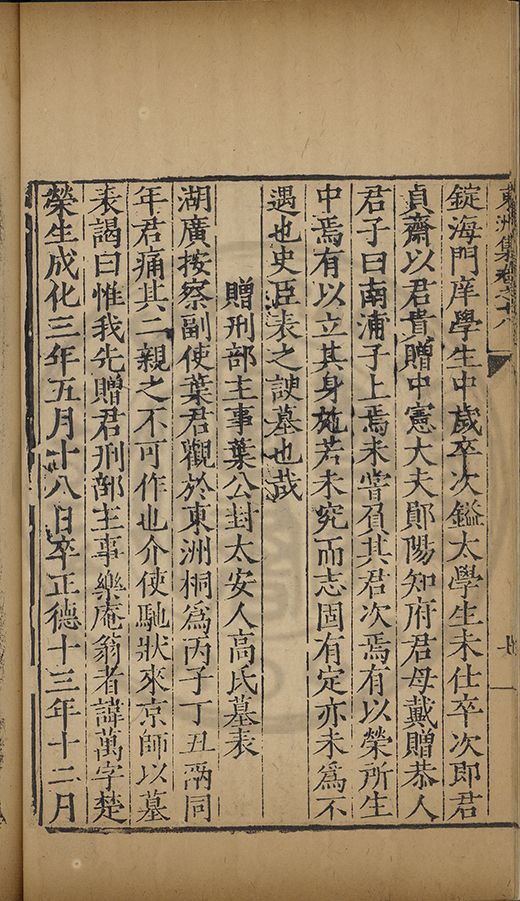 東洲集卷之十八
錠海門庠學生中歲卒次鎰太學生未仕卒次即君
貞齋以君貴贈中憲大夫鄖陽知府君母戴贈恭人
君子曰南浦子上焉未嘗負其君次焉有以榮所生
中焉有以立其身施若未究而志固有定亦未為不
遇也史臣表之諛墓也哉
贈刑部主事葉公封太安人高氏墓表
湖廣按察副使葉君觀於東洲桐為丙子丁丑兩同
年君痛其二親之不可作也介使馳狀來京師以墓
表謁曰惟我先贈君刑部主事樂庵翁者諱萬字楚
榮生成化三年五月十八日卒正德十三年十二月